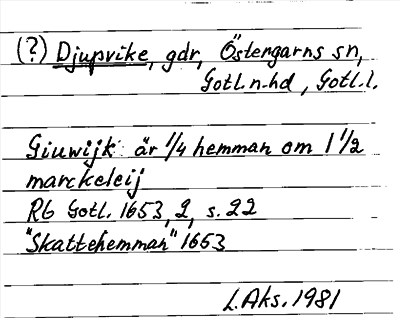 (?) Djupvike, gdr, Östergarns sn,
Gotl. n. hd, Gotl. l.
Giuwijk är 1/4 hemman om 1 1/2
marckeleij
Rb Gotl. 1653, 2, s. 22
"Skattehemman" 1653
L. Aks. 1981